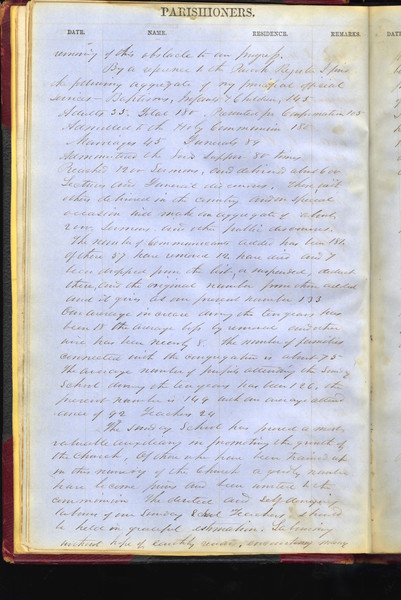 PARISHIONERS.
DATE. NAME. RESIDENCE. REMARKS. DAT
removing of this obstacle to our progress.
By a reference to the Parish Register I find
the following aggregate of my principal official
services - Baptisms, Infants & Children, 145
Adults 35. Total 180. Presented for Confirmation 105
Admitted to the Holy Communion 180
Marriages 45 Funerals 89
Administered the Lord's Supper 80 times
Preached 1200 Sermons, and delivered about
Lectures and Funeral discourses. These with
others delivered in the country and on special
occasions will make an aggregate of about
Sermons and other public discourses.
The number of Communicants added has been 186
of these 37 have removed 12 have died and 7
been dropped from the list, or suspended, deduct
these, and the original number from those added
and it gives us our present number 133
Our average increase during the ten years has
been 18 the average loss by removal and other
wise has been nearly 8. The number of families
connected with the congregation is about 75
The average number of pupils attending the Sunday
School during the ten years has been 126. the
present number is 149 with an average attend
ance of 92 Teachers 24
The Sunday School has proved a most
valuable auxiliary in promoting the growth of
the Church. Of those who have been trained up
in this nursery of the Church a goodly number
have become pious and been united to the
communion. The devoted and self denying
labours of our Sunday School Teachers should
be held in grateful estimation. Labouring
without hope of earthly reward, encountering many